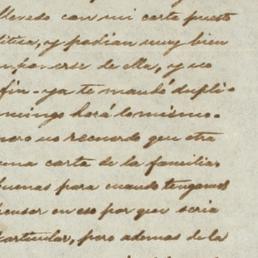 llevado con mi carta puesto
litica, y podian muy bien
imponerse de ella, y no
fin - ya te mandé dupli-
mingo hará lo mismo.
pero no recuerdo que otra
una carta de la familia.
buenas para cuando tengamos
pensar en eso por que seria
particular, pero ademas de la